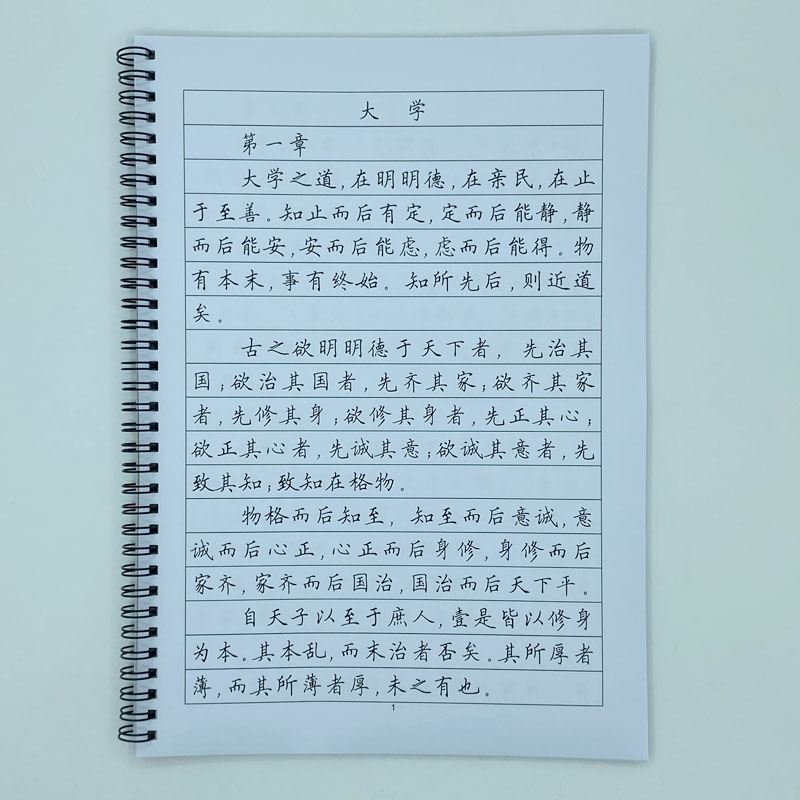 大 学
第一章
大学之道,在明明德,在亲民,在止
于至善。知止而后有定,定而后能静,静
而后能安,安而后能虑,虑而后能得。物
有本末,事有终始。知所先后,则近道
矣。
古之欲明明德于天下者,先治其
国;欲治其国者,先齐其家;欲齐其家
者,先修其身;欲修其身者,先正其心;
欲正其心者,先诚其意;欲诚其意者,先
致其知;致知在格物。
物格而后知至,知至而后意诚,意
诚而后心正,心正而后身修,身修而后
家齐,家齐而后国治,国治而后天下平。
自天子以至于庶人,壹是皆以修身
为本。其本乱,而末治者否矣。其所厚者
薄,而其所薄者厚,未之有也。
1